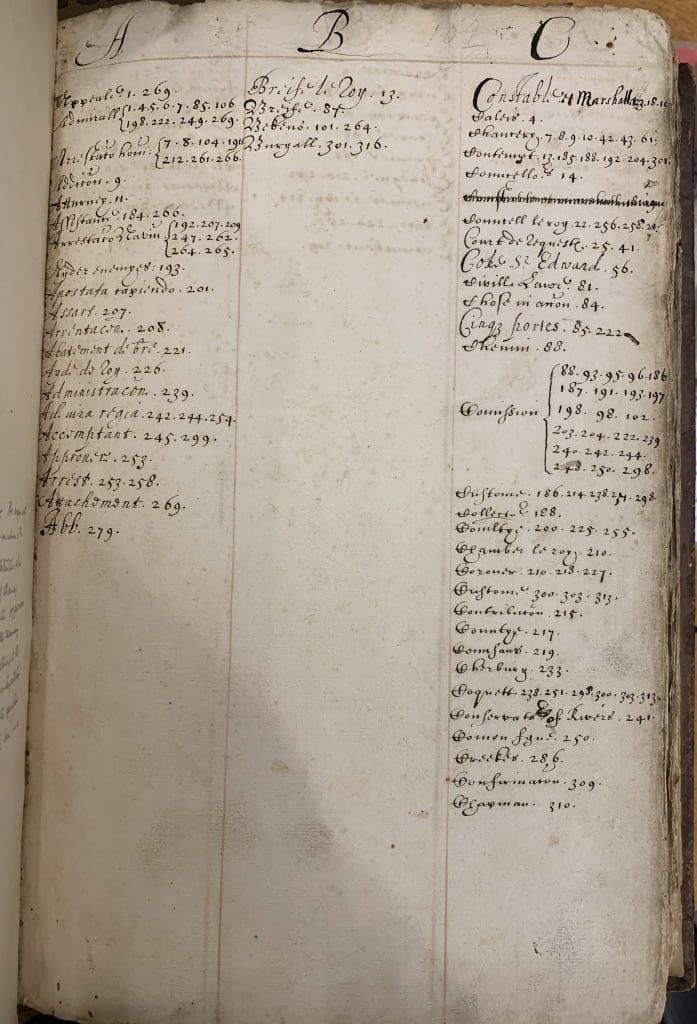 A
Appeale. 1. 269.
Admirall 1. 4. 5. 6. 7. 85. 106
198. 222. 249. 269.
Arrestato hom: 7. 8. 104. 191
212. 261. 266.
Addicon. 9.
Atturney. 11.
Assistants 184. 266.
Arrestato Navin 192. 207. 209
247. 262.
264. 265.
Ayder enemyes. 193.
Apostata capiendo. 201.
Assart. 207.
Arrentacon. 208.
Abatement de bre. 221.
Ayde de Roy. 226.
Administracon. 239.
Ad iura regia. 242. 244. 254.
Accomptant. 245. 299.
Approner. 253.
Arrest. 253. 258.
Attachement. 269.
Abb. 279.
B
Breife le Roy. 13.
Breife. 87.
Bekens. 101. 264.
Burgall. 301. 316.
C
Constable et Marshall 3. 18.
Caleis. 4.
Chancery. 7. 8. 9. 10. 42. 43. 61.
Contempt. 13. 185. 188. 192. 204. 301.
Councello.rs 14.
Councell le roy. 22. 256. 258.
Court de Request. 25. 41.
Coke Sr. Edward. 56.
Civill Lawe. 81.
Chose in accon. 84.
Cinqz portes. 85. 222
Chemin. 88.
88. 93. 95. 96. 186
187. 191. 193. 197
Comission 198. 98. 102.
203. 204. 222. 239
240. 242. 244.
248. 250. 298.
Custome. 186. 214. 238. 298.
Collector. 188.
Comittye. 200. 225. 255.
Chamber le roy. 210.
Coroner. 210. 218. 227.
Custome. 300. 303. 313.
Contribucon. 215.
Countye. 217.
219.
Cherburg. 233.
Coquett 238. 251. 298. 300. 303. 313.
Conservato.r of Rivers. 241.
Comon 250.
Creekes. 286.
Confirmacon. 309.
Chapman. 310.